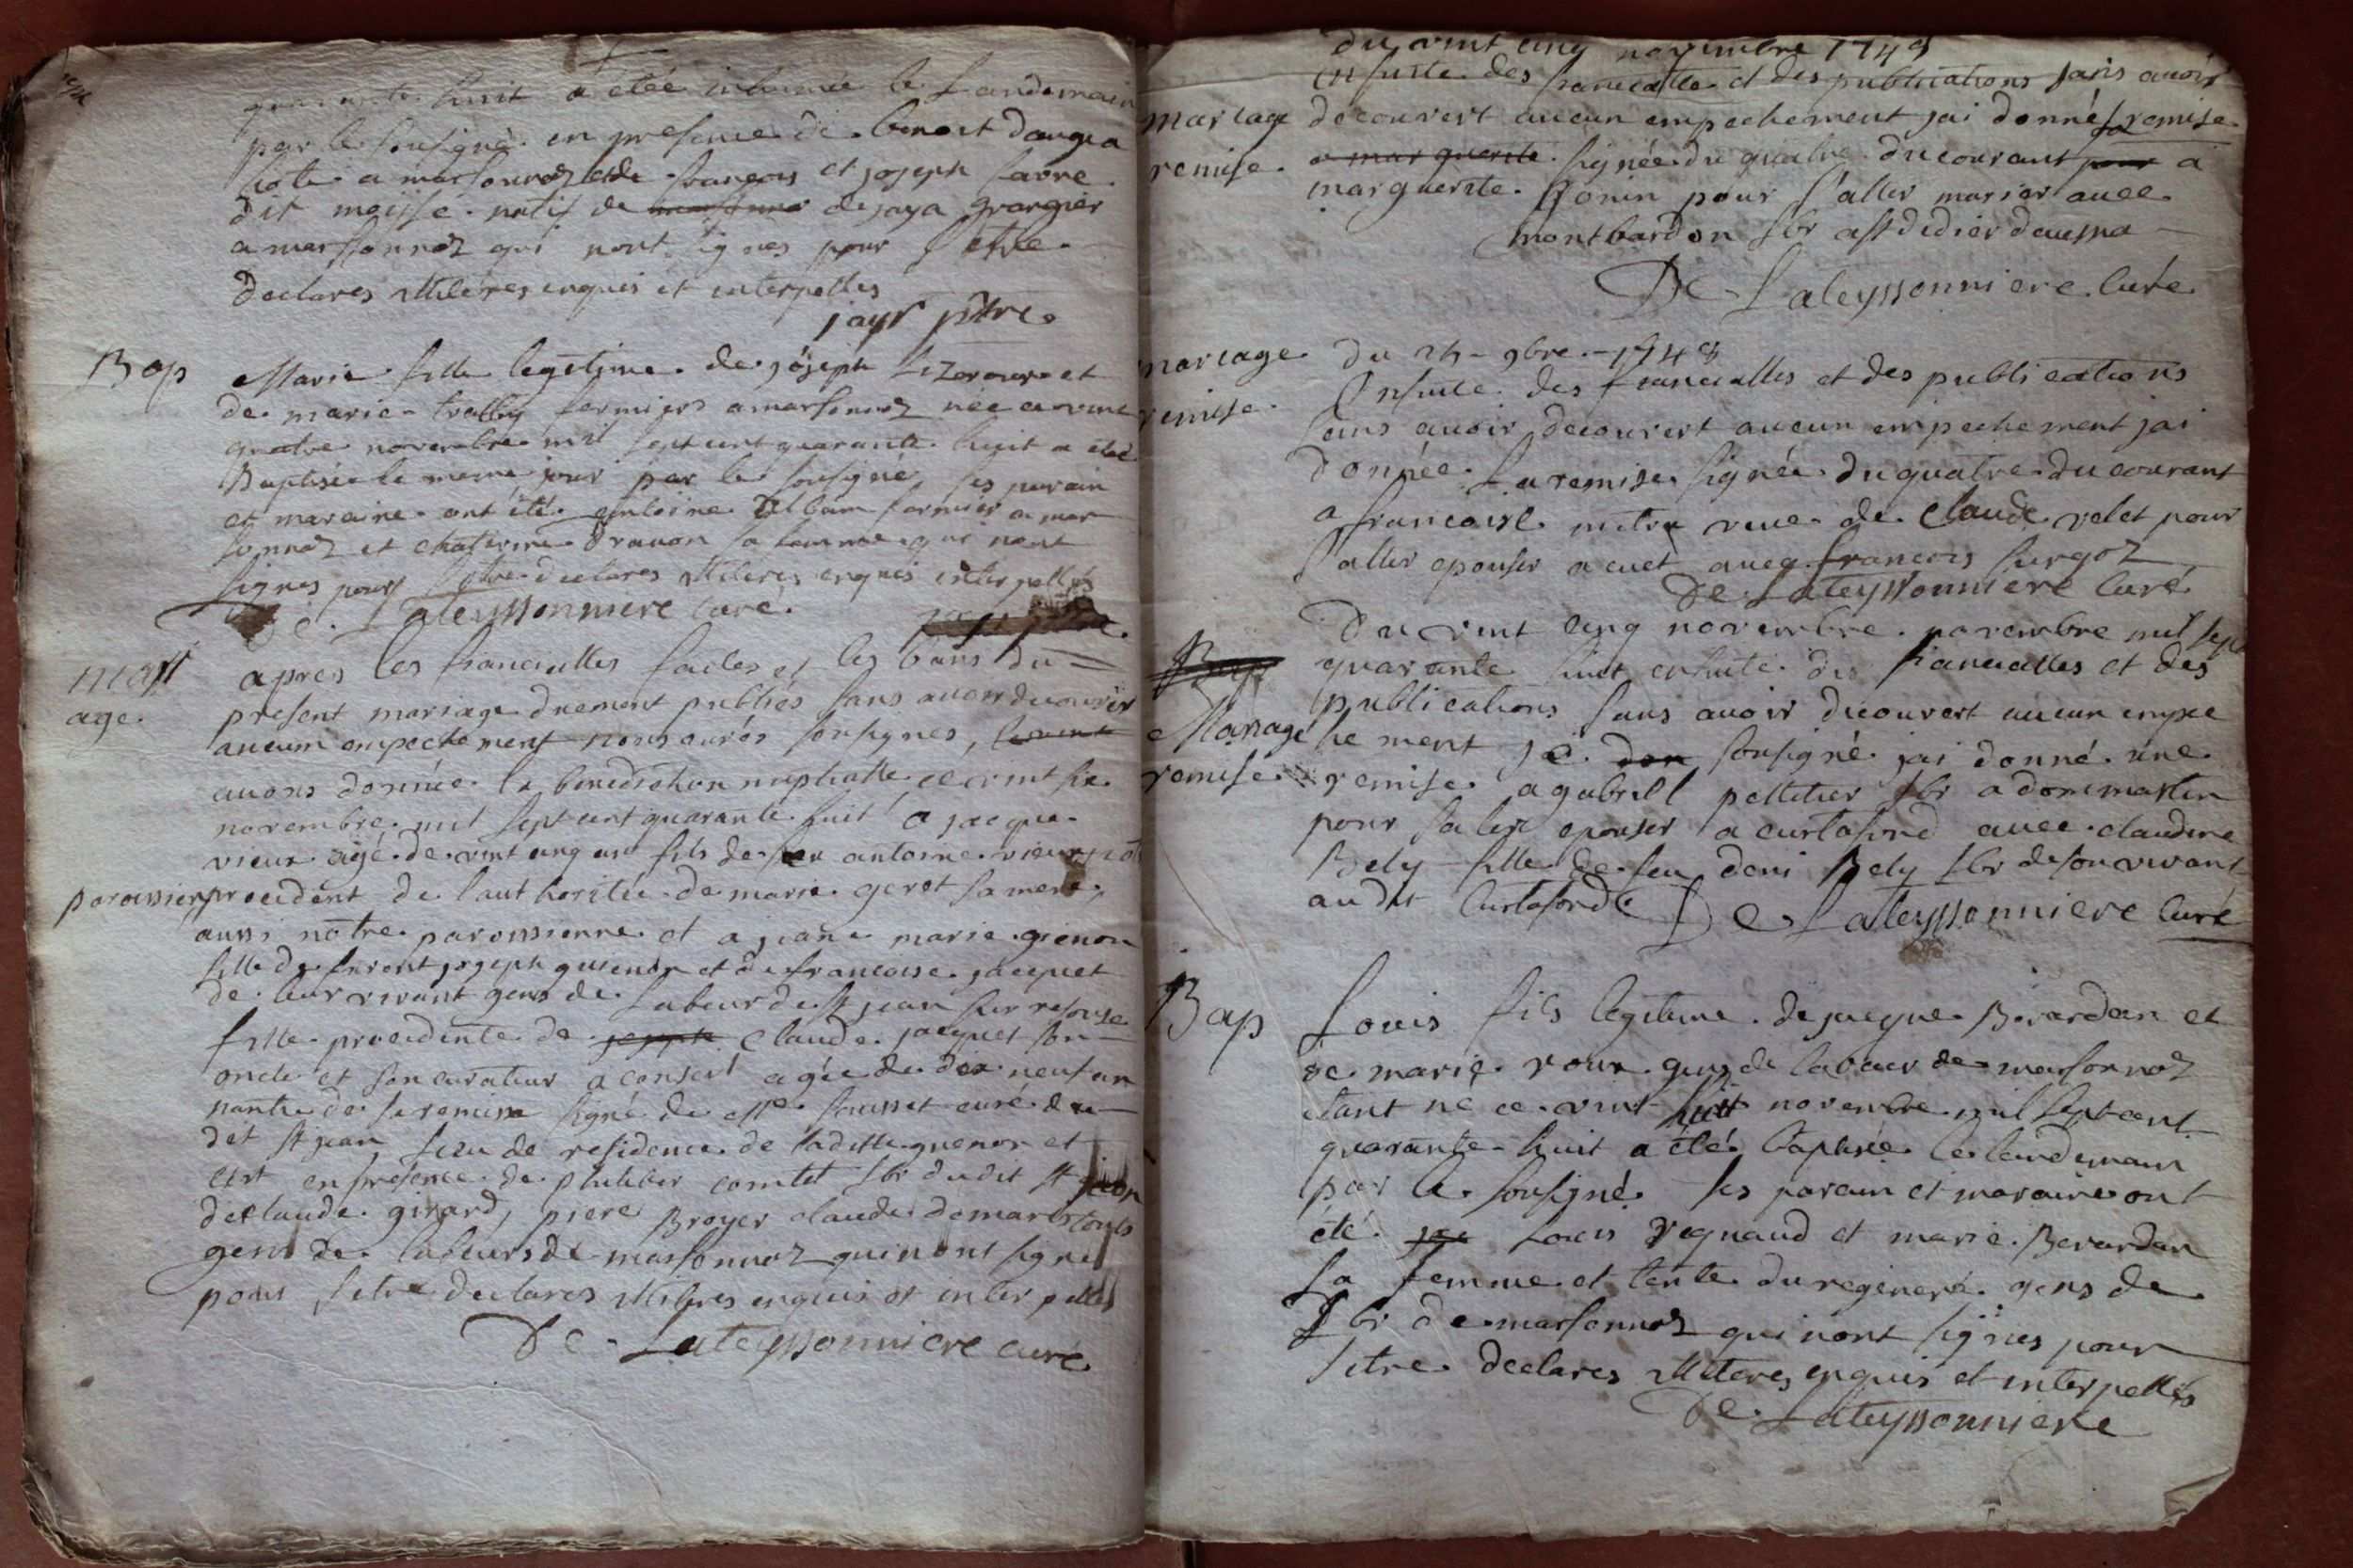 quarante huit a étée inhumée le Landemain
par le sousigné en presence de benoit dangea
hote a marsonnaz et de françois et joseph favre
dit moissé natif de de jaya grangier
a marsonnaz qui nont signes pour s'etre
declares illiteres enquis et interpelles
jayr ptre
Bap
Marie fille legitime de joseph et
de marie fermiers a marsonnaz née ce vint
quatre novembre mil sept cent quarante huit a étée
Baptisée le meme jour par le sousigné ses parain
et maraine ont été antoine fermier a mar
sonnaz et chaterine sa femme qui nont
signes pour setre declares illiteres enquis interpelles
De Lateyssonniere curé
mari
age
apres les fiancialles faites et les bans du
present mariage duement publiés sans avoir decouvert
aucun empechement nous curés sousignes,
avons donnée la benediction nuptialle ce vint six
novembre mil sept cent quarante huit a jacque
vieux agé de vint cinq ans fils de feu antoine vieux
paroissien procedent de l'authoritée de marie geret sa mere,
aussi nôtre paroissienne et a jeane marie guenon
fille de furent joseph guenon et de francoise jacquet
de leur vivant gens de Labeur de st jean sur resouse
fille procedente de joseph claude jacquet son
oncle et son curateur a conseil agée de dix neuf an
nantie de sa remise signé de Mre curé du
dit st jean lieu de residence de laditte guenon et
c'est en presence de philiber comtet lbr dudit st jean
de claude girard, piere Broyer claude demares touts
gens de labeurs de marsonnaz qui nont signé
pour setre declares illiteres enquis et interpelles
De Lateyssonniere curé
du vint cinq novembre 1748
Ensuite des fiancialles et des publications sans avoir
mariage
remise
decouvert aucun empechement jai donné sa remise
a marguerite signée du quatre du courant pour a
marguerite Gonin pour s'aller marier avec
montbardon lbr a st didier daussia
De Lateyssonniere curé
mariage
remise
Du 25 9bre 1748
Ensuite des fiancialles et des publications
sans avoir decouvert aucun empechement jai
donnée La remise signée du quatre du courant
a francoise veuve de claude velet pour
s'aller epouser a cuet avec francois
De Lateyssonniere curé
Bap
Mariage
remise
Du vint cinq novembre novembre mil sept
quarante huit ensuite des fiancialles et des
publications sans avoir decouvert aucun empec
he ment je don sousigné jai donné une
remise a gabriell pelletier lbr a dommartin
pour saler epouser a curtafond avec claudine
Bely fille de feu deni Bely lbr de son vivant
au dit Curtafond De Lateyssonniere curé
Bap
Louis fils legitime de jacque Berardan et
de marie roux gens de labaeur de marsonnaz
etant né ce vint huit novembre mil sept cent
quarante huit a été baptisée le landemain
par le sousigné ses parain et maraine ont
été Louis regnaud et marie Berardan
sa femme et tente du regeneré gens de
lbr de marsonnaz qui nont signes pour
setre declares illiteres enquis et interpellés
De Lateyssonniere